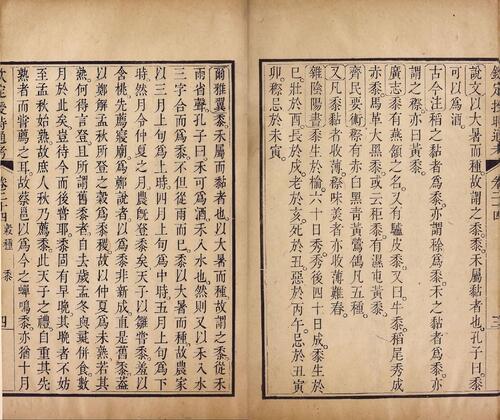 說文以大暑而種故謂之黍黍禾屬而黏者也孔子曰黍
可以為酒
古今注稻之黏者為黍亦謂稌為黍禾之黏者為黍亦
謂之穄亦曰黃黍
廣志黍有燕頷之名又有驢皮黍又曰牛黍稻尾秀成
赤黍馬革大黑黍或云秬黍有濕屯黃黍
齊民要術穄有赤白黑青黃鷰鴿凡五種
又凡黍黏者收薄穄味美者亦收薄難舂
雜陰陽書黍生於榆六十日秀秀後四十日成黍生於
巳壯於酉長於戌老於亥死於丑惡於丙午忌於丑寅
卯穄忌於未寅
爾雅翼黍禾屬而黏者也以大暑而種故謂之黍從禾
雨省聲孔子曰禾可為酒禾入水也然則又以禾入水
三字合而為黍不但從雨而已黍以大暑而種故農家
以三月上旬為上時四月上旬為中時五月上旬為下
時然月令仲夏之月農旣登黍矣天子以雛嘗黍羞以
含桃先薦寢廟為鄭說者以為黍非新成直是舊黍蓋
以鄭解孟秋所登之穀為黍稷故以仲夏為未熟若其
熟何得言登且所謂舊黍者自去歲孟冬與彘併食數
月於此矣豈待今而後嘗耶黍固有早晩其晩者不妨
至孟秋始熟故庶人秋乃薦黍此天子之禮自重其先
熟者而嘗薦之耳故蔡邕以為今之蟬鳴黍亦猶十月
定授時通考 卷二十四 穀種 黍 四